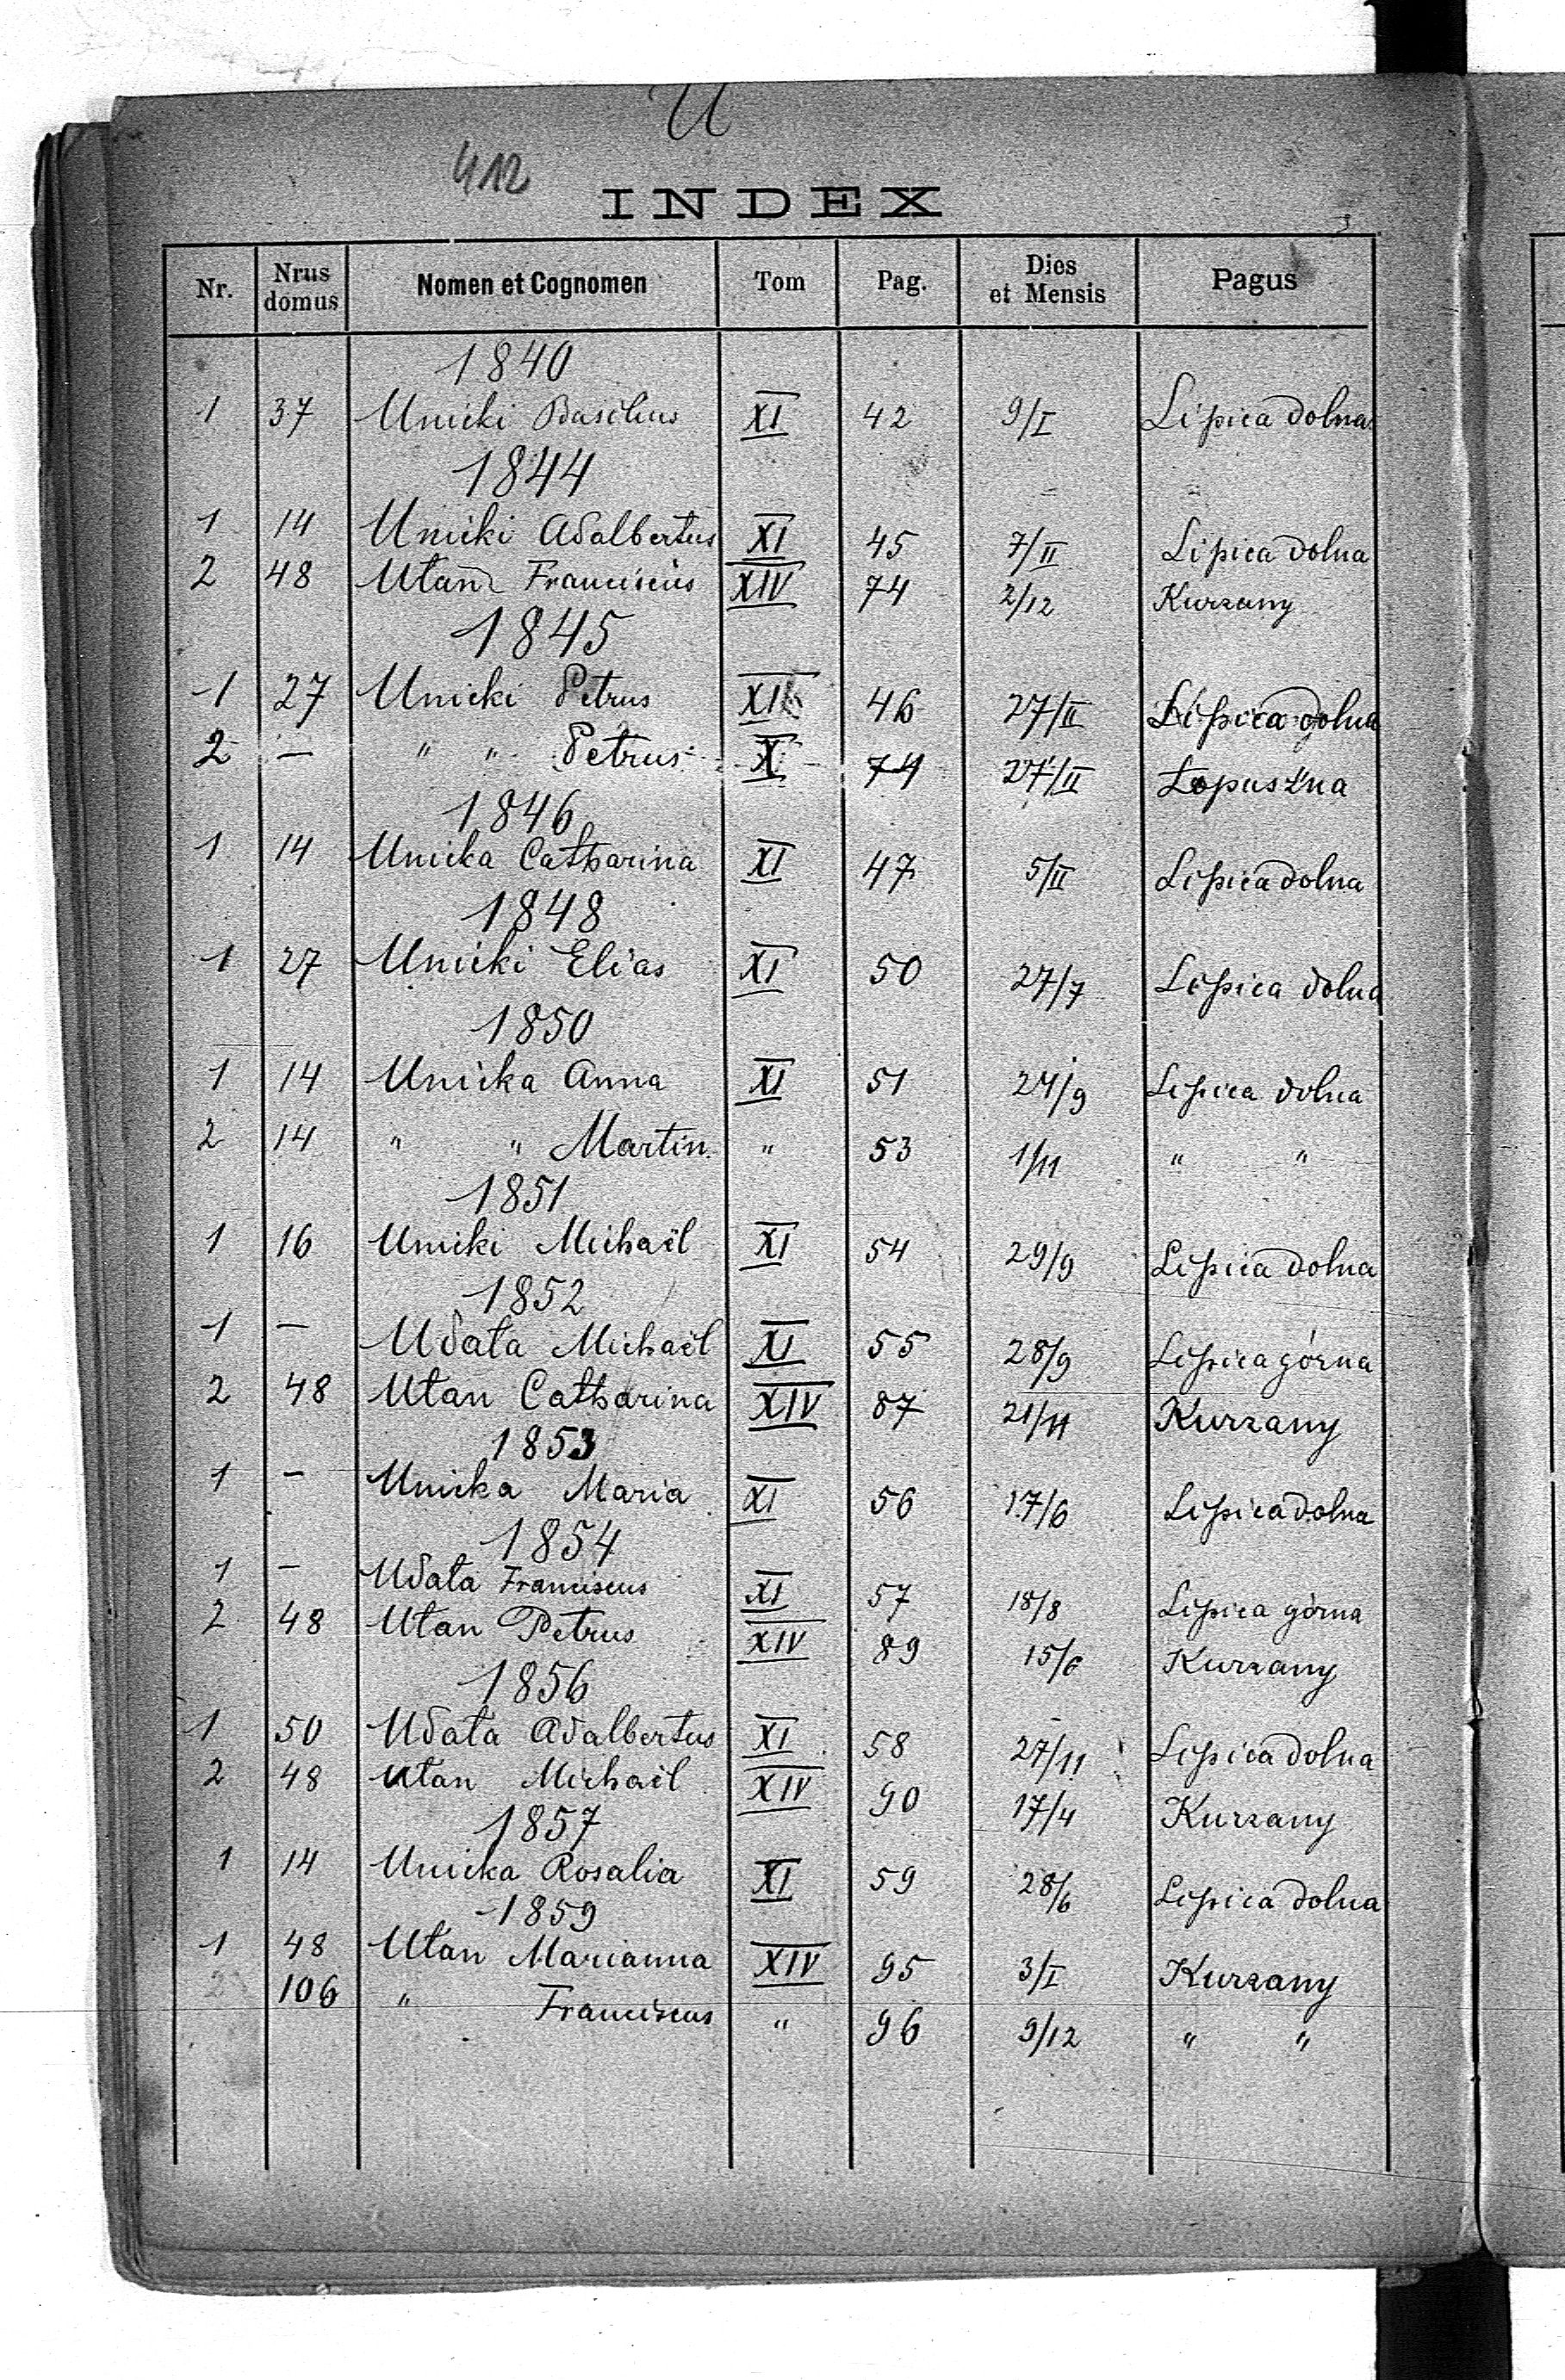 U
412
INDEX
Nr. Nrus domus Nomen et Cognomen Tom Pag. Dies et Mensis Pagus
1840
1 37 Unicki Basilius XI 42 9/I Lipica dolna
1844
1 14 Unicki Adalbertus XI 45 7/II Lipica dolna
2 48 Utan Franciscus XIV 74 2/12 Kurzany
1845
1 27 Unicki Petrus XI 46 27/II Lipica dolna
2 — " " Petrus X 74 27/II Łopuszna
1846
1 14 Unicka Catharina XI 47 5/II Lipica dolna
1848
1 27 Unicki Elias XI 50 27/7 Lipica dolna
1850
1 14 Unicka Anna XI 51 24/9 Lipica dolna
2 14 " " Martin " 53 1/11 " "
1851
1 16 Unicki Michaël XI 54 29/9 Lipica dolna
1852
1 — Udata Michaël XI 55 28/9 Lipica górna
2 48 Utan Catharina XIV 87 21/11 Kurzany
1853
1 — Unicka Maria XI 56 17/6 Lipica dolna
1854
1 — Udata Franciscus XI 57 18/8 Lipica górna
2 48 Utan Petrus XIV 89 15/6 Kurzany
1856
1 50 Udata Adalbertus XI 58 27/11 Lipica dolna
2 48 Utan Michaël XIV 90 17/4 Kurzany
1857
1 14 Unicka Rosalia XI 59 28/6 Lipica dolna
1859
1 48 Utan Marianna XIV 95 3/I Kurzany
2 106 " Franciscus " 96 9/12 " "